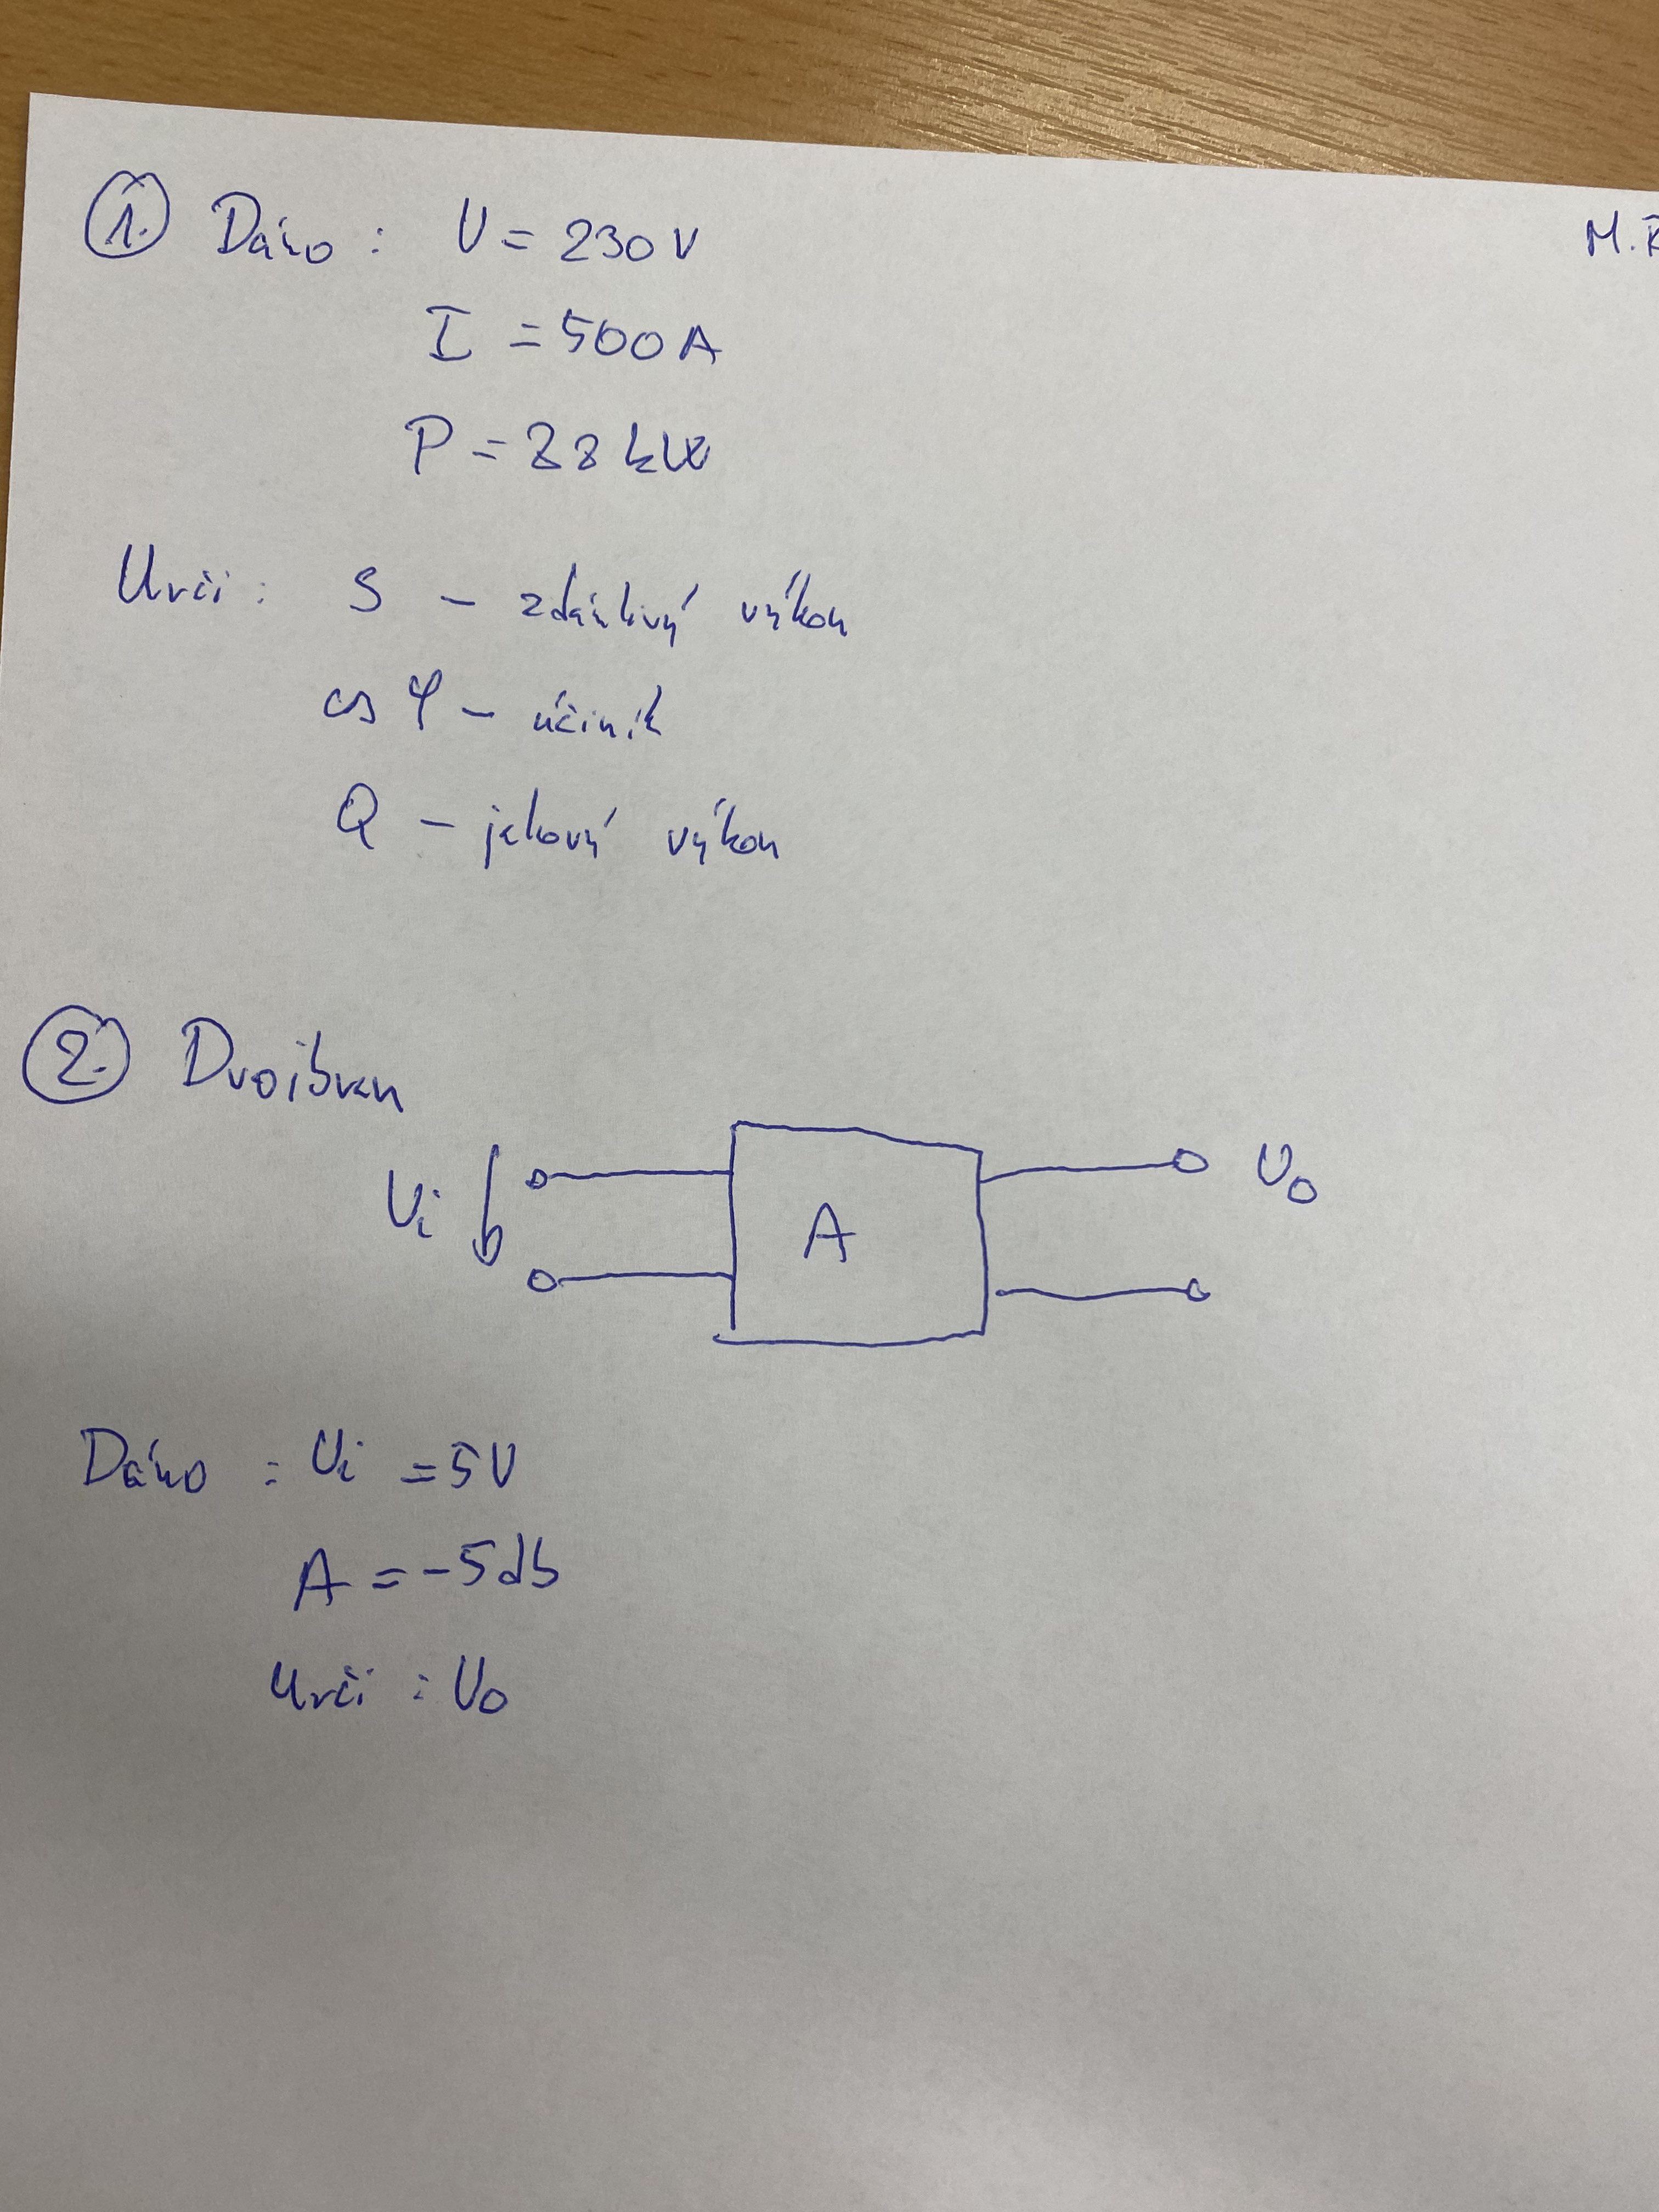 1. Dáno: U = 230 V
M.
I = 500 A
P = 88 kW
Urči: S – zdánlivý výkon
cos φ – účiník
Q – jalový výkon
2. Dvojbran
Ui A Uo
Dáno: Ui = 5V
A = -5db
Urči: Uo